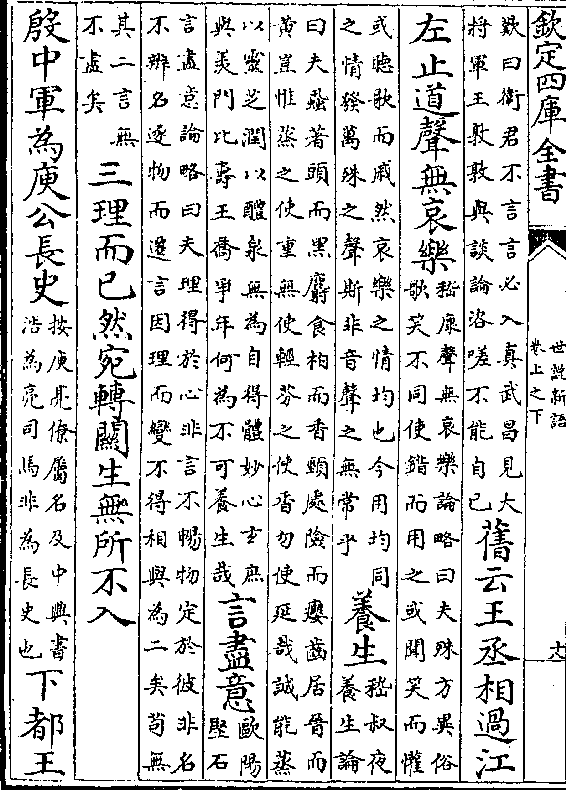 欽定四庫全書
世說新語
卷上之下
歎曰衛君不言言必入真武昌見大
將軍王敦敦與談論洛嗟不能自已
舊云王丞相過江
左止道聲無哀樂
嵇康聲無哀樂論略曰夫殊方異俗
歌笑不同使錯而用之或聞笑而懽
或聽歌而戚然哀樂之情均也今用均同
之情發萬殊之聲斯非音聲之無常乎
養生
嵇叔夜
養生論
曰夫蝨著頭而黑麝食柏而香頸處險而癭齒居晉而
黄豈惟蒸之使重無使輕芬之使香勿使延哉誠能蒸
以靈芝潤以醴泉無為自得體妙心玄庶
與羨門比壽王喬爭年何為不可養生哉
言盡意
歐陽
堅石
言盡意論略曰夫理得於心非言不暢物定於彼非名
不辨名逐物而遷言因理而變不得相與為二矣苟無
其二言無
不盡矣
三理而已然宛轉關生無所不入
殷中軍為庾公長史
按庾亮僚屬名及中興書
浩為亮司馬非為長史也
下都王